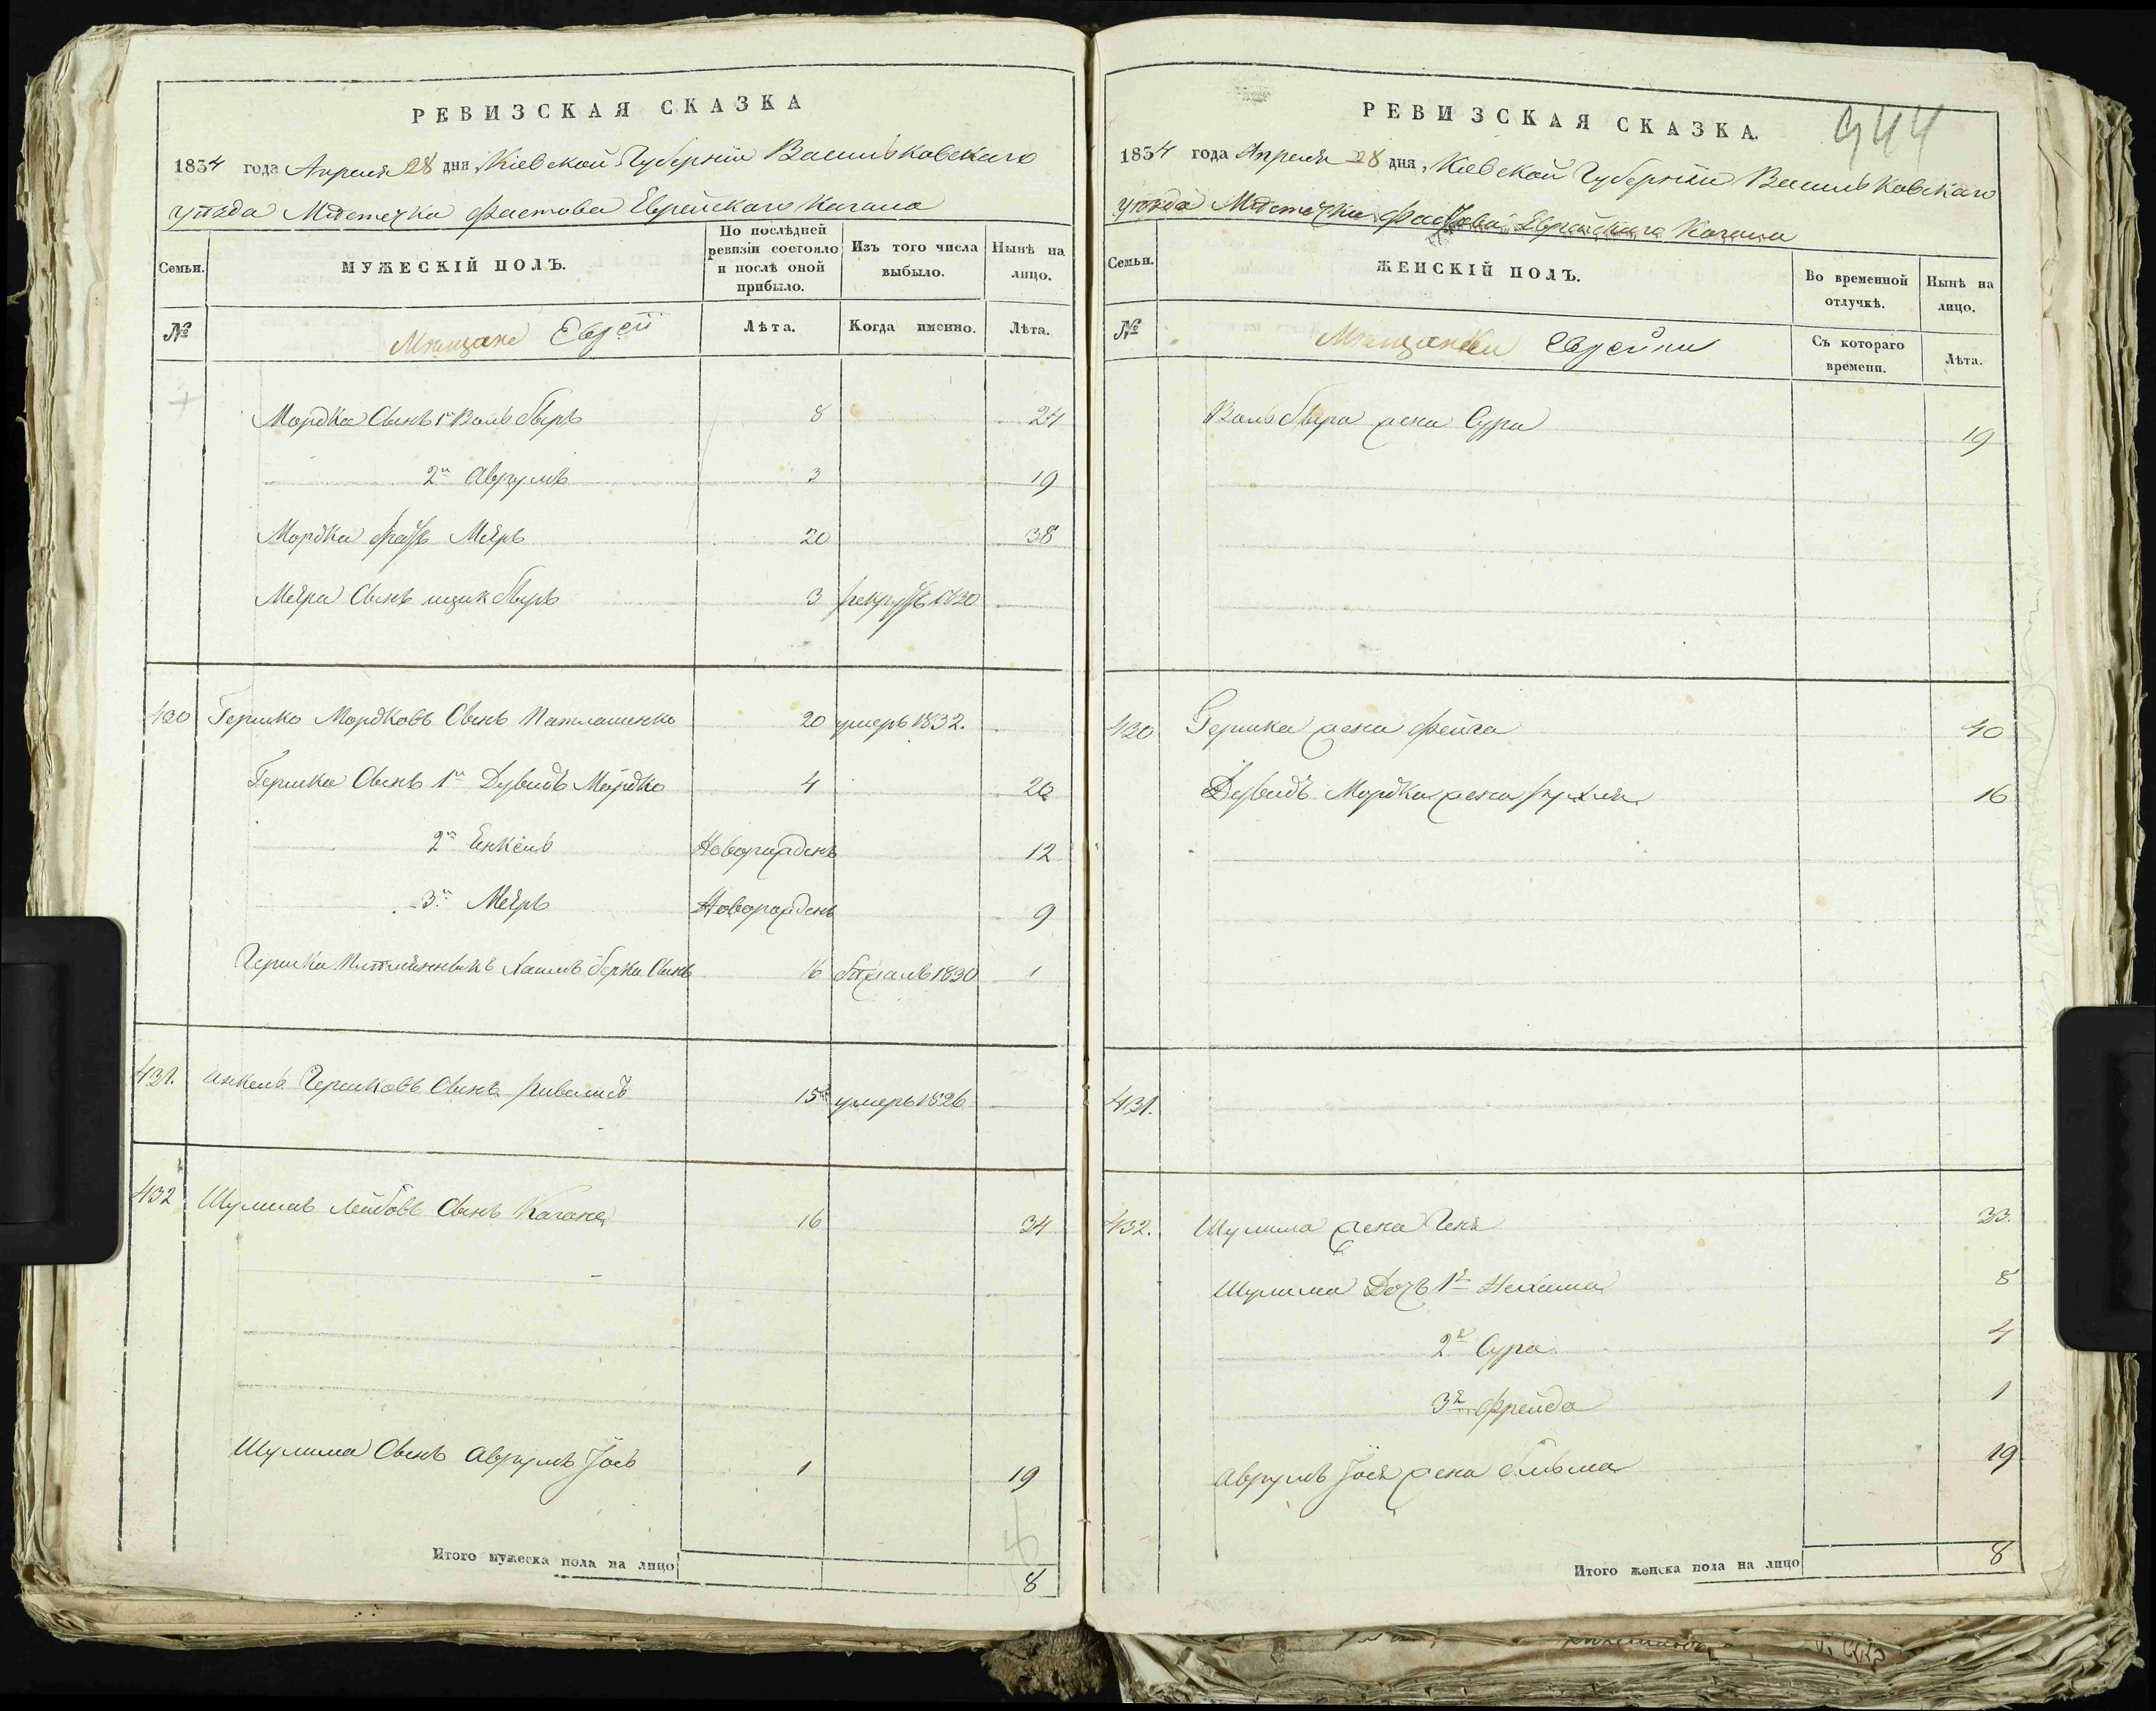 РЕВИЗСКАЯ СКАЗКА
1834 года Апреля 28 дня, Кіевской Губерніи Васильковскаго
уѣзда Мѣстечка Фастова Еврейскаго Кагала
Семьи.
МУЖЕСКІЙ ПОЛЪ.
По послѣдней ревизіи состояло и послѣ оной прибыло.
Изъ того числа выбыло.
Нынѣ на лицо.
№
Мѣщане Евреи
Лѣта.
Когда именно.
Лѣта.
Мордка Сынъ 1й Вольф 8 24
2й Аврумъ 3 19
Мордки братъ Меѣръ 20 38
Меѣра Сынъ 3 рекрутъ 1830
430 Гершко Мордковъ Сынъ 20 умеръ 1832.
Гершка Сынъ 1й Дувидъ Мордко 4 20
2й Енкель Новорожденъ 12
3й Меѣръ Новорожденъ 9
Гершка Племянникъ Берка Сынъ 16 бѣжалъ 1830 1
431. Инкель Гершковъ Сынъ 15 умеръ 1826
432 Шулимъ Лейбовъ Сынъ Каганъ 16 34
Шулима Сынъ Аврумъ Іось 1 19
Итого мужеска пола на лицо 8
РЕВИЗСКАЯ СКАЗКА.
944
1834 года Апреля 28 дня, Кіевской Губерніи Васильковскаго
уѣзда Мѣстечка Фастова Еврейскаго Кагала
Семьи.
ЖЕНСКІЙ ПОЛЪ.
Во временной отлучкѣ.
Нынѣ на лицо.
№
Мѣщанки Еврейки
Съ котораго времени.
Лѣта.
жена Сура 19
430 Гершка жена Фейга 40
Дувидъ Мордка жена Рухля 16
431.
432. Шулима жена Геня 33.
Шулима Дочь 1я Нехама 8
2я Сура 4
3я Фрейда 1
Аврумъ Іося жена 19
Итого женска пола на лицо 8